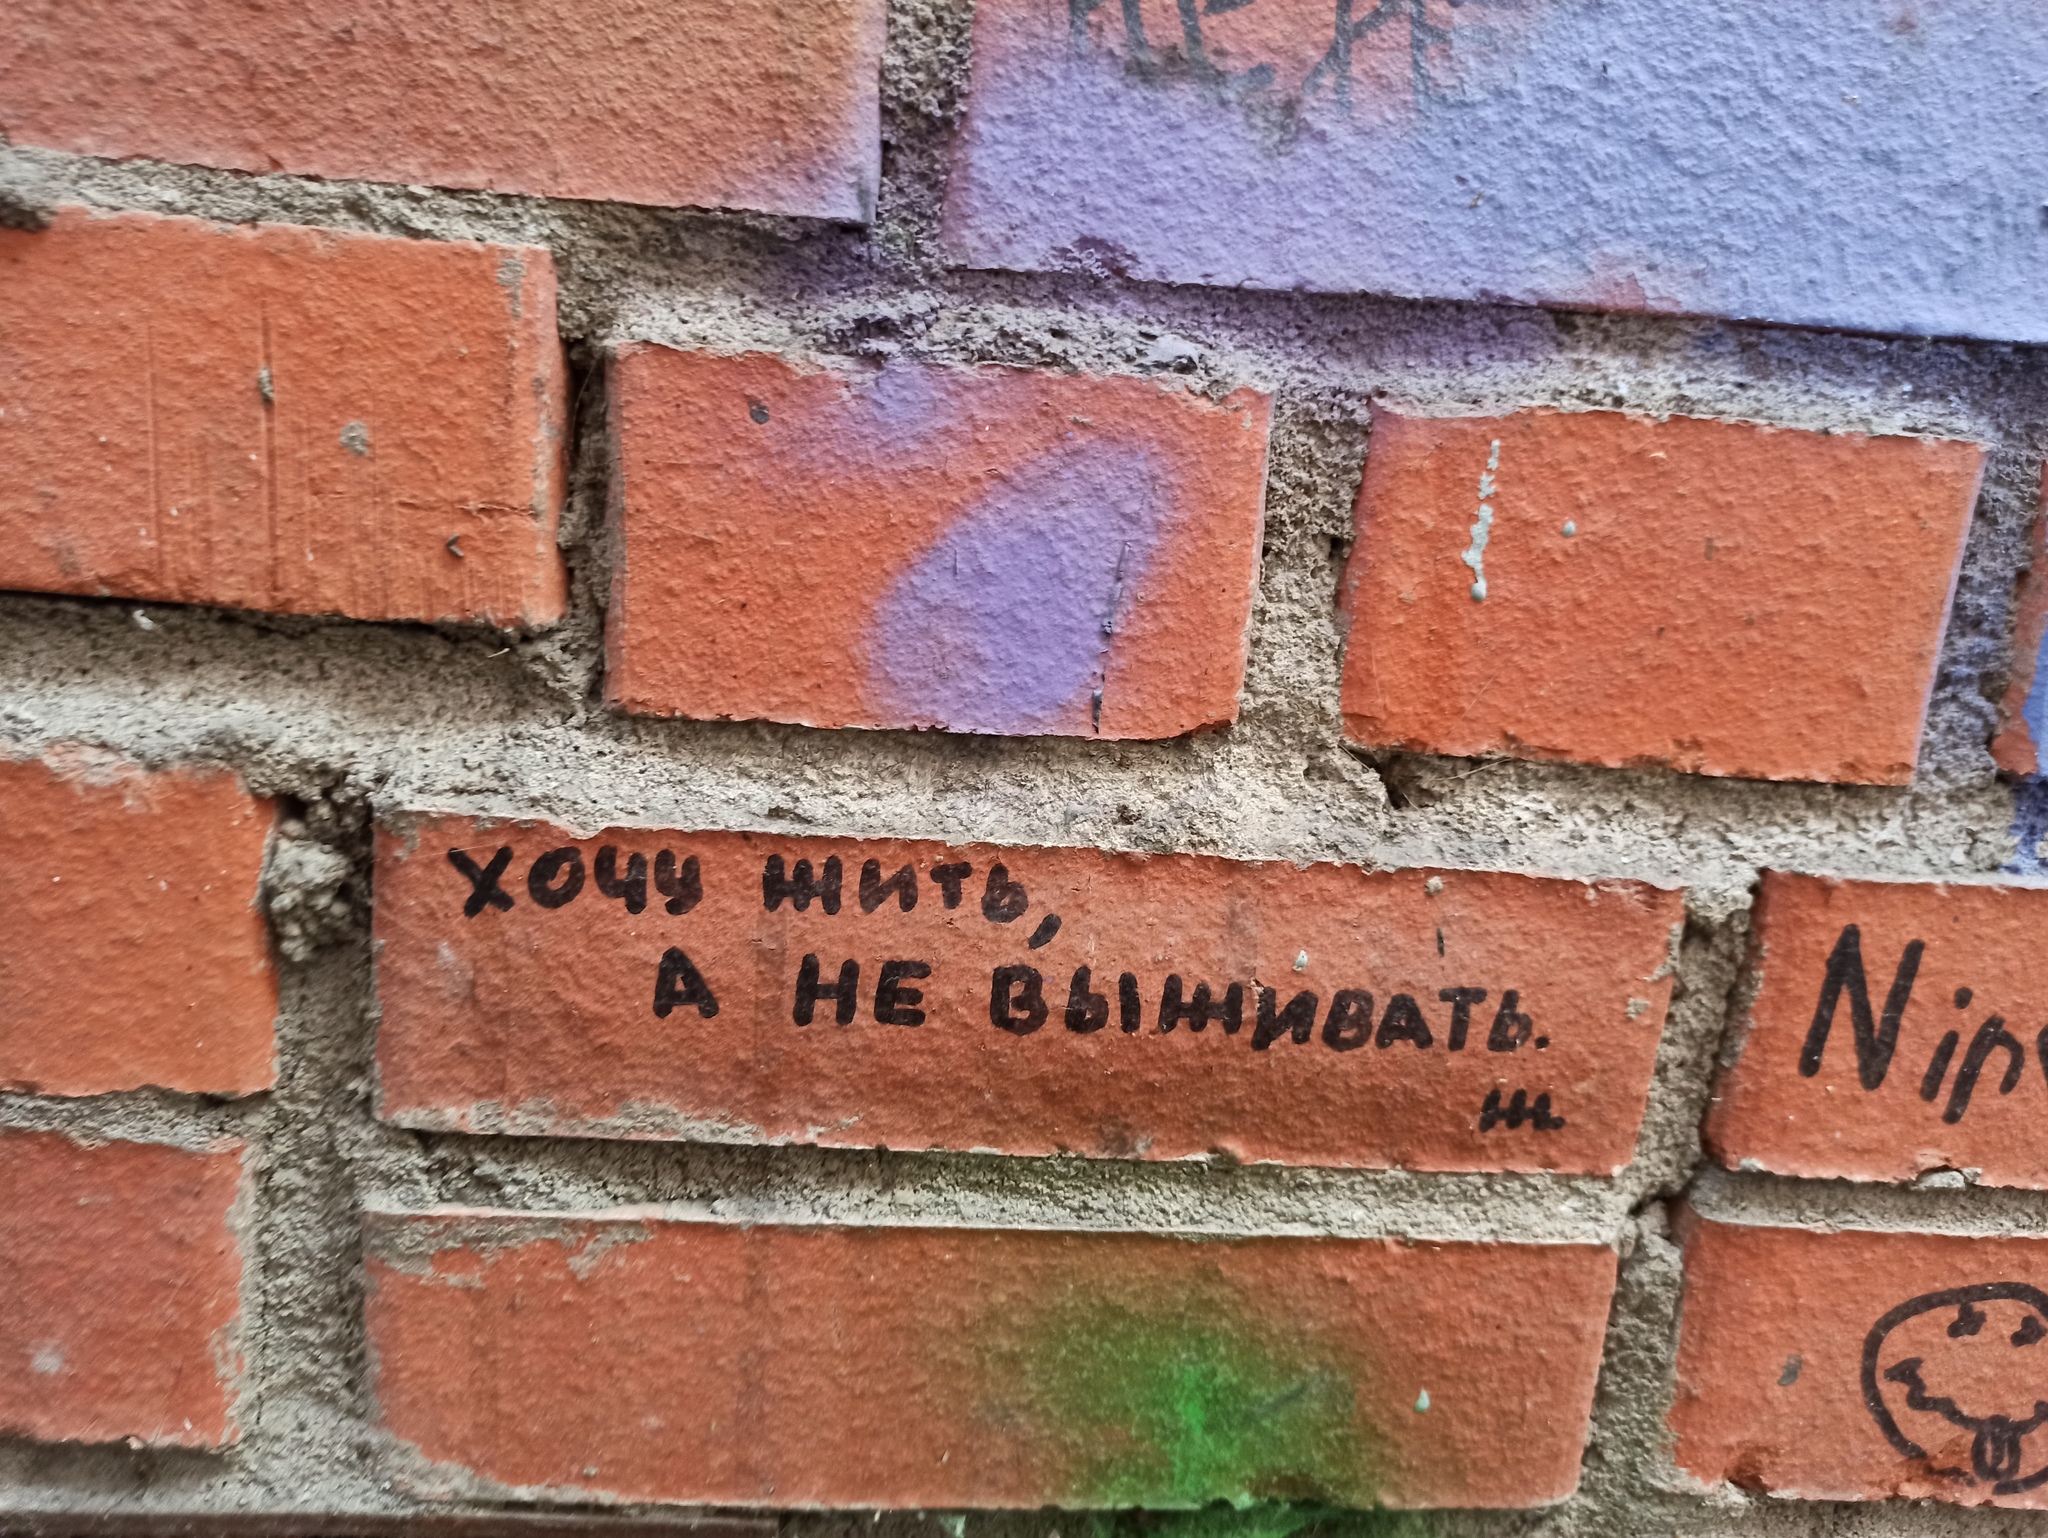 ХОЧУ ЖИТЬ,
А НЕ ВЫЖИВАТЬ.
Ж.